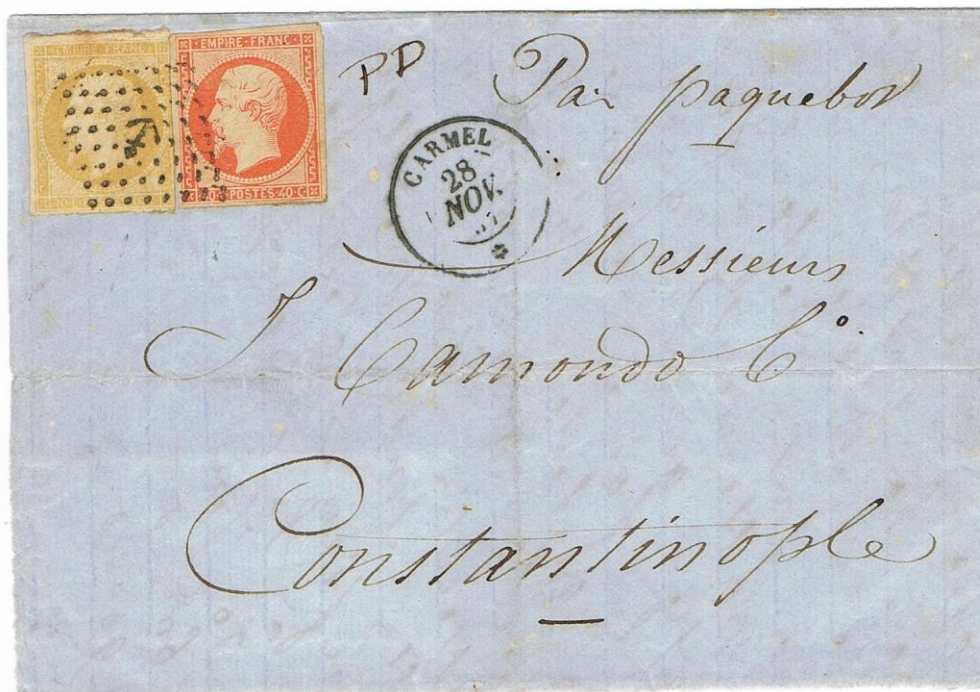 EMPIRE FRANC
EMPIRE·FRANC·
POSTES·40·C·
PD
Par paquebot
CARMEL
28
NOV.
Messieurs
J Camondo Cº
Constantinople